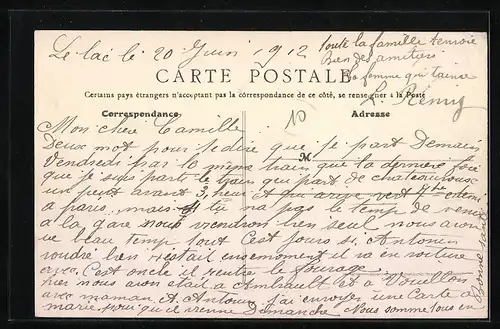 Le lac le 20 Juin 1912
toute la famille tenvoie
bien des amitiers
ta femme qui t'aime
L. Rémy
CARTE POSTALE
Certains pays étrangers n'acceptant pas la correspondance de ce côté, se renseigner à la Poste
Correspondance
Adresse
10
M
Mon cher Camille
Deux mot pour te dire que je part Demain
Vendredi par le même train que la dernière fois
que je suis parti le train qui part de chateauroux
un peut avant 3 heur et qui arive vert 7 he
a paris mais si tu na pas le temp de venir
a la gare nous viendron bien seul nous avons
ue blau temp tout c'est jours si Antonin
voudré bien restait ensemoment il va en voiture
avec C'est oncle il rentre le fourage
hier nous avon était a Ambrault et a Vouillon
avec maman A. Antonin j'ai envoyer une Carte a
marie pour qu'il vienne Dimanche Nous somme tous en
bonne santé